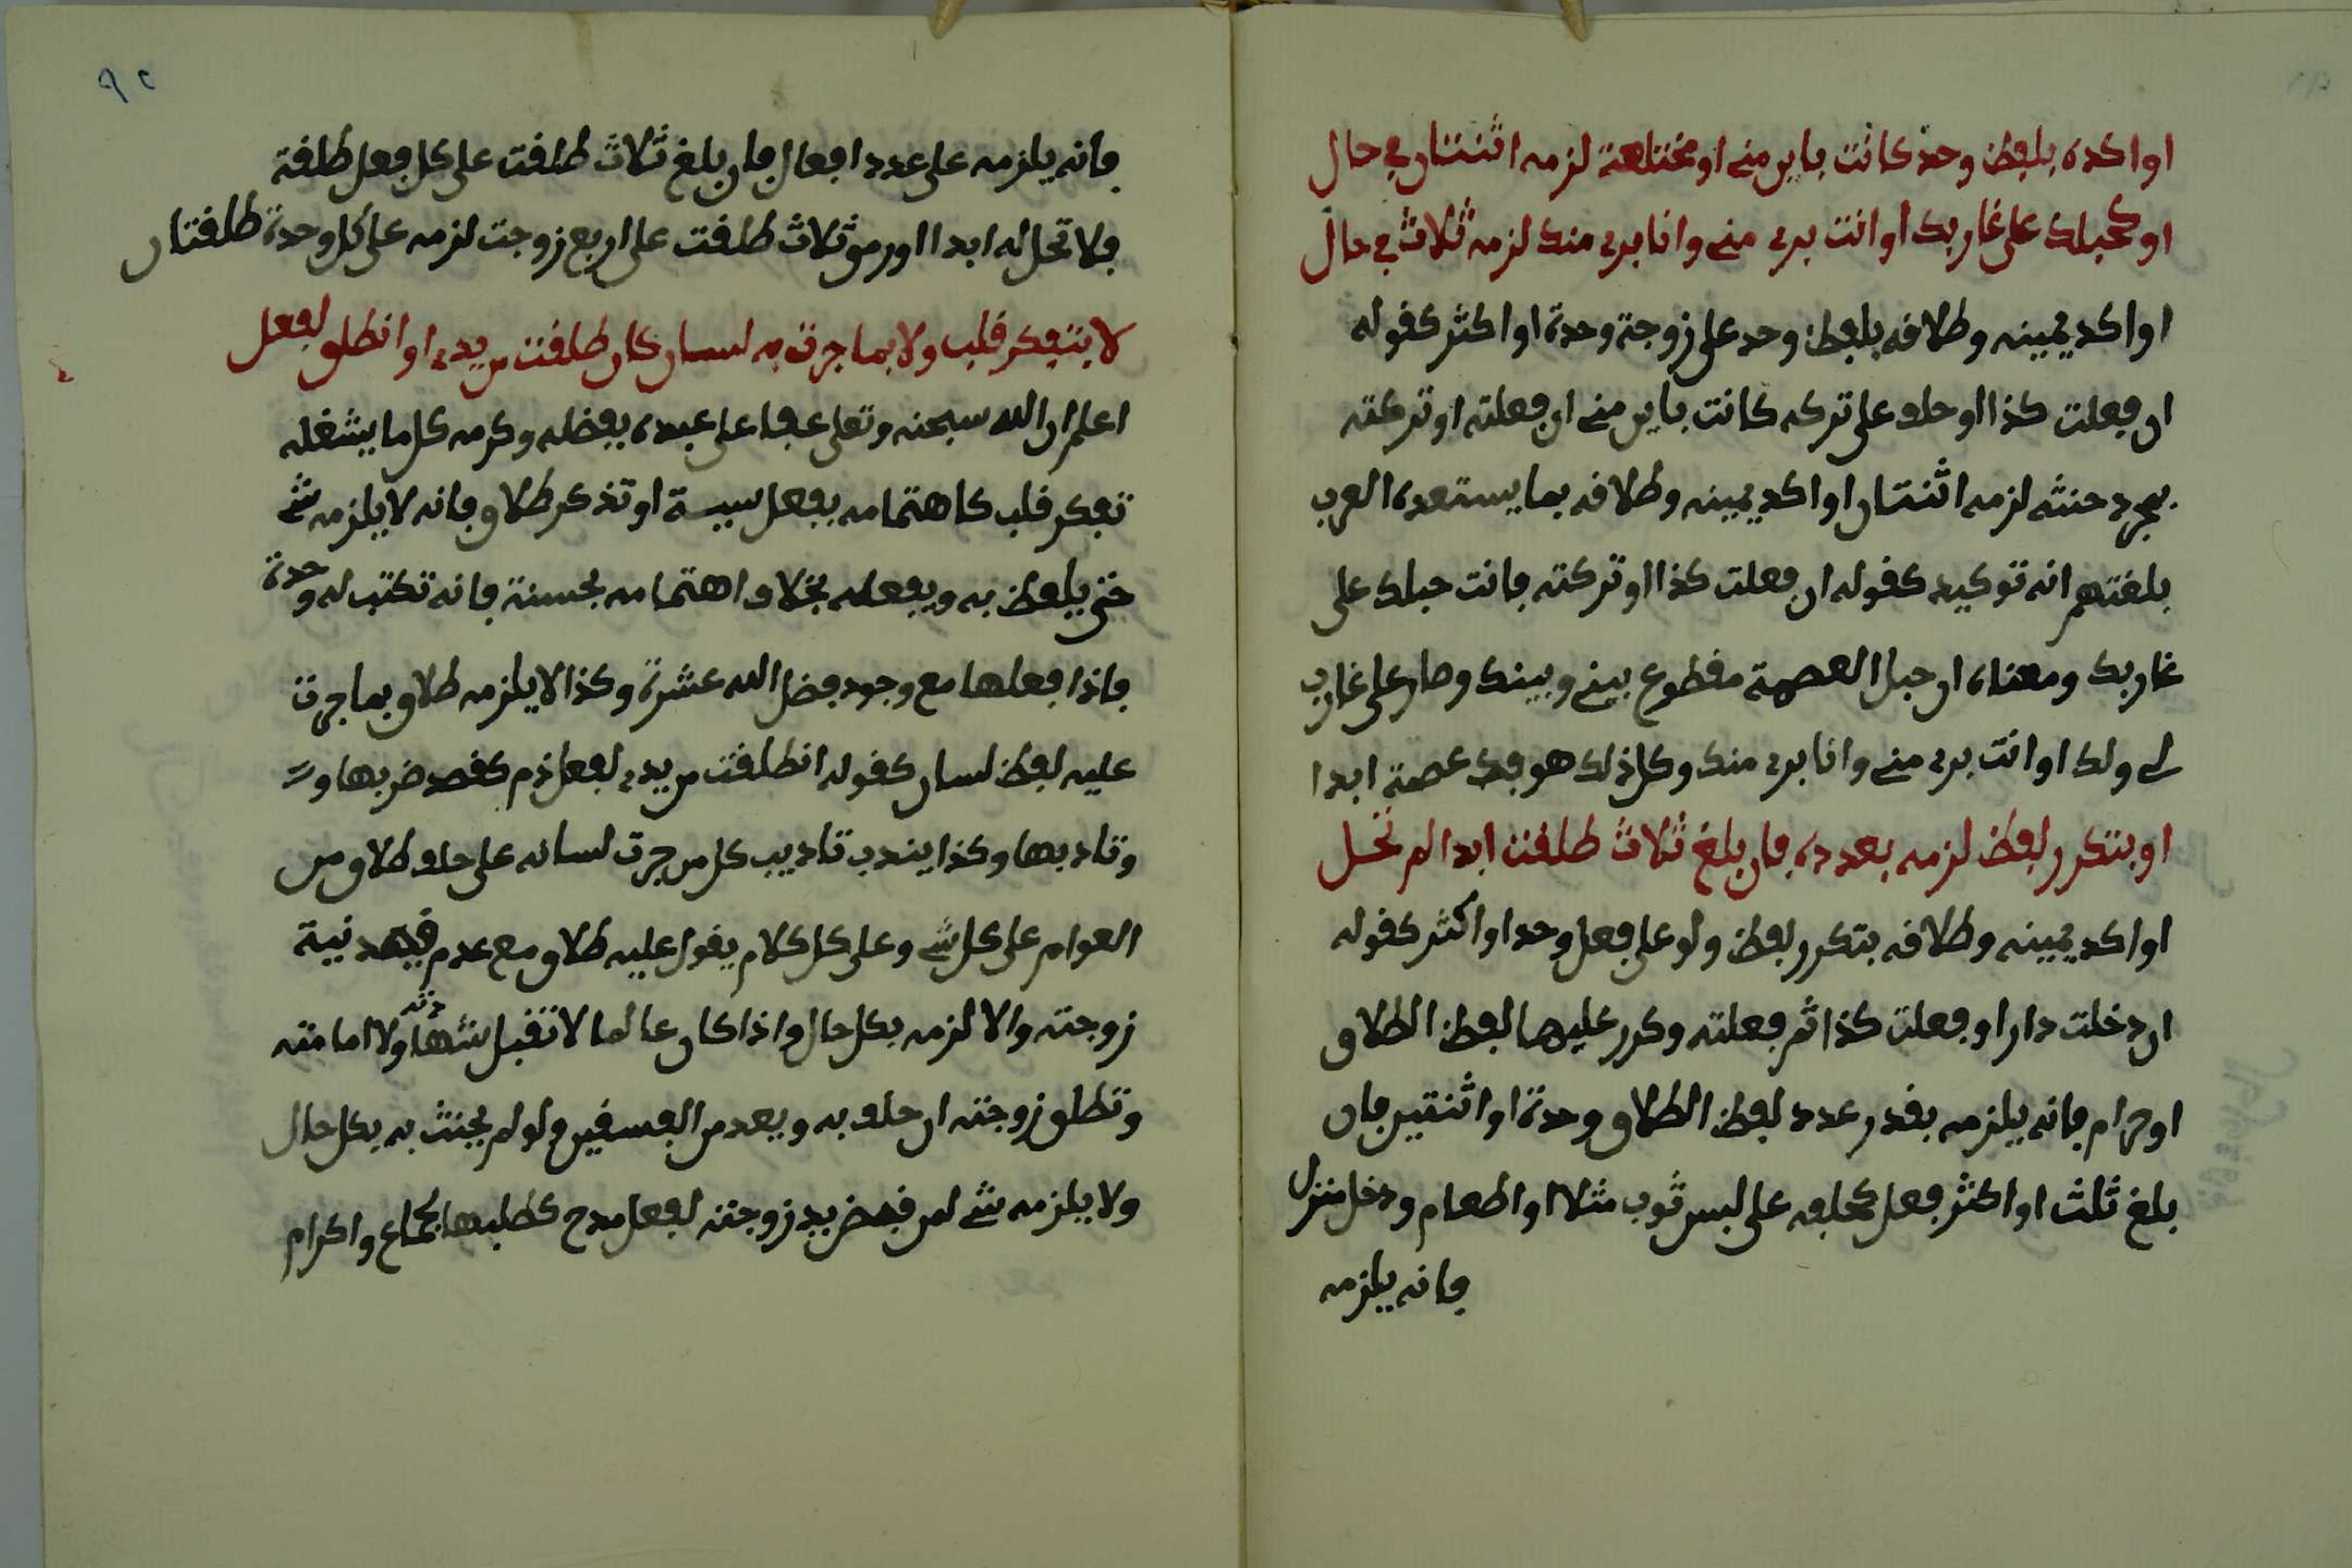 او اكده بلفظ وحد كانت باين مني او مختلعة لزمه اثنتان في حال
او كحبلك على غاربك او انت بري مني وانا بري منك لزمه ثلاث في حال
او اكد يمينه وطلافه بلفظ وحد على زوجة وحدة او اكثر كقوله
ان فعلت كذا او حلف على تركه كانت باين مني ان فعلته او تركته
بمجرد حنثه لزمه اثنتان او اكد يمينه وطلافه بما يستعده العرب
بلغتهم انه توكيد كقوله ان فعلت كذا او تركته فانت حبلك على
غاربك ومعناه ان حبل العصمة مقطوع بيني وبينك وصار على غارب
لي ولك او انت بري مني وانا بري منك وكل ذلك هو فك عصمة ابدا
او بتكرر لفظ لزمه بعدده فان بلغ ثلاث طلقت ابدا لم تحل
او اكد يمينه وطلافه بتكرر لفظ ولو على فعل وحد او اكثر كقوله
ان دخلت دار او فعلت كذا ثم فعلته وكرر عليها لفظ الطلاق
او حرام فانه يلزمه بقدر عدد لفظ الطلاق وحدة او اثنتين فان
بلغ ثلث او اكثر فعل كحلفه على لبس ثوب مثلا او اطعام ودخل منزل
فانه يلزمه
٩٢
فانه يلزمه على عدد افعال فان بلغ ثلاث طلقت على كل فعل طلقة
فلا تحل له ابدا او رمى ثلاث طلقت على اربع زوجت لزمه على كل وحدة طلقتان
لا بتفكر قلب ولا بما جرت به لسان كان طلقت من يدي او انطلق لفعل
اعلم ان الله سبحنه وتعلى عفا على عبده بفضله وكرمه كل ما يشغله
تفكر قلب كاهتمامه بفعل سيسة او تذكر طلاق فانه لا يلزمه شي
حتى يلفظ به ويفعله بخلاف اهتمامه بحسنة فانه تكتب له وحدة
فاذا فعلها مع وجود فضل الله عشرة وكذا لا يلزمه طلاق بما جرت
عليه لفظ لسان كقوله انطلقت من يدي لفعل ذم كقصد ضربها و
وتادبها وكذا يندب تاديب كل من جرت لسانه على حلف طلاق من
العوام على كل شي وعلى كل كلام يقول عليه طلاق مع عدم قصد نية
زوجته والا لزمه بكل حال واذا كان عالما لا تقبل شهادته ولا امامته
وتطلق زوجته ان حلف به ويعد من الفسقين ولو لم يحنث به بكل حال
ولا يلزمه شي لمن قبض يد زوجته لفعل مدح كطلبها لجماع واكرام